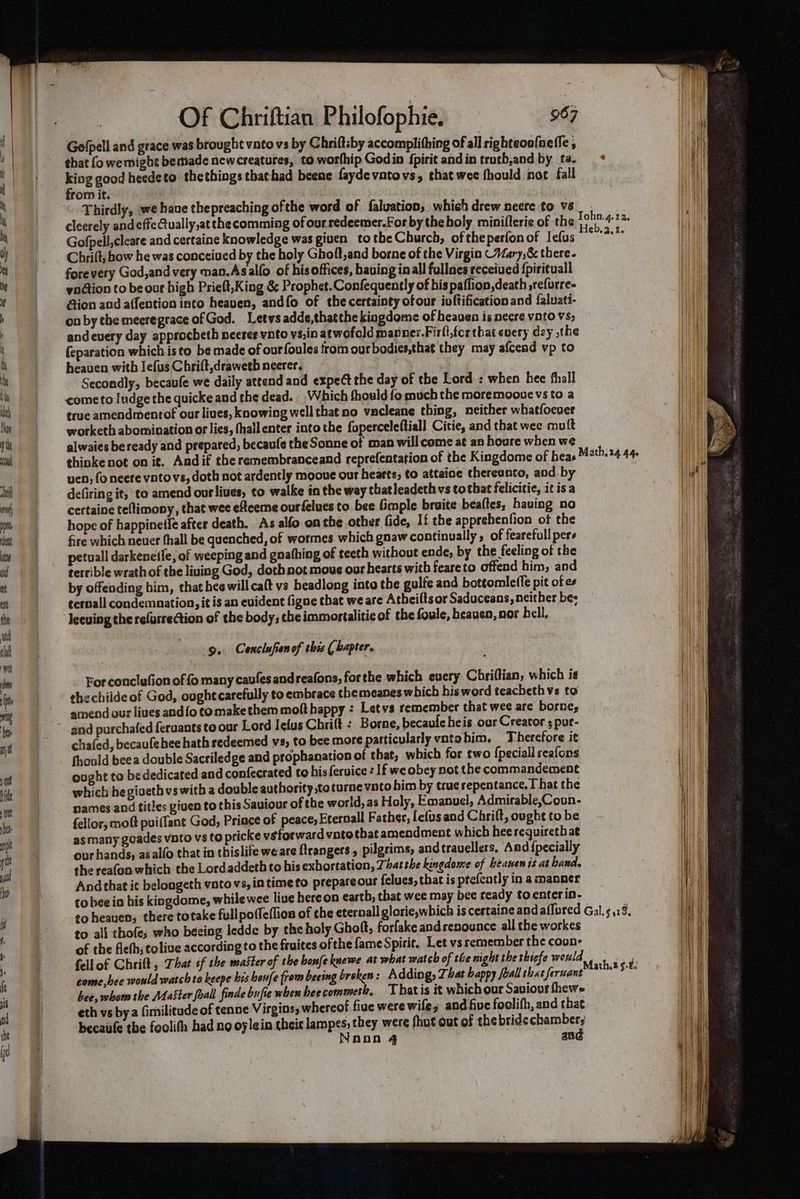 Of Chriſtian Philoſophie. 967
Goſpell and grace was brought vnto vs by Chriſt: by accompliſhing of all righteouſneſſe;
that ſo we might be made new creatures, to worſhip God in ſpirit and in truth, and by ta-
king good heede to the things that had beene ſayde vnto vs, that wee ſhould not fall
from it.
Thirdly, we haue the preaching of the word of ſaluation, which drew neere to vs
cleerely and effectually, at the comming of our redeemer. For by the holy miniſterie of the
Iohn. 4. 12.
Heb. 2, 1.
Goſpell, cleare and certaine knowledge was giuen to the Church, of the perſon of Ieſus
Chriſt, how he was conceiued by the holy Ghoſt, and borne of the Virgin Mary, & there-
fore very God, and very man. As alſo of his offices, hauing in all fullnes receiued ſpirituall
vnction to be our high Prieſt, King & Prophet. Conſequently of his paſſion, death, reſurre-
ction and aſſention into heauen, and ſo of the certainty of our iuſtification and ſaluati-
on by the meere grace of God. Let vs adde, that the kingdome of heauen is neere vnto vs,
and euery day approcheth neerer vnto vs, in a twofold manner. Firſt, for that euery day, the
ſeparation which is to be made of our ſoules from our bodies, that they may aſcend vp to
heauen with Ieſus Chriſt, draweth neerer.
Secondly, becauſe we daily attend and expect the day of the Lord: when hee ſhall
come to Iudge the quicke and the dead. Which ſhould ſo much the more mooue vs to a
true amendment of our liues, knowing well that no vncleane thing, neither whatſoeuer
worketh abomination or lies, ſhall enter into the ſuperceleſtiall Citie, and that wee muſt
alwaies be ready and prepared, becauſe the Sonne of man will come at an houre when we
thinke not on it. And if the remembrance and repreſentation of the Kingdome of hea-
Math. 24 44.
uen, ſo neere vnto vs, doth not ardently mooue our hearts, to attaine thereunto, and by
deſiring it, to amend our liues, to walke in the way that leadeth vs to that felicitie, it is a
certaine teſtimony, that wee eſteeme our ſelues to bee ſimple bruite beaſtes, hauing no
hope of happineſſe after death. As alſo on the other ſide, If the apprehenſion of the
fire which neuer ſhall be quenched, of wormes which gnaw continually, of fearefull per-
petuall darkeneſſe, of weeping and gnaſhing of teeth without ende, by the feeling of the
terrible wrath of the liuing God, doth not moue our hearts with feare to offend him, and
by offending him, that hee will caſt vs headlong into the gulfe and bottomleſſe pit of e-
ternall condemnation, it is an euident ſigne that we are Atheiſts or Saduceans, neither be-
leeuing the reſurrection of the body, the immortalitie of the ſoule, heauen, nor hell.
9. Concluſion of this Chapter.
For concluſion of ſo many cauſes and reaſons, for the which euery Chriſtian, which is
the childe of God, ought carefully to embrace the meanes which his word teacheth vs to
amend our liues and ſo to make them moſt happy: Let vs remember that wee are borne,
and purchaſed ſeruants to our Lord Ieſus Chriſt: Borne, becauſe he is our Creator, pur-
chaſed, becauſe hee hath redeemed vs, to bee more particularly vnto him. Therefore it
ſhould bee a double Sacriledge and prophanation of that, which for two ſpeciall reaſons
ought to be dedicated and conſecrated to his ſeruice: If we obey not the commandement
which he giueth vs with a double authority, to turne vnto him by true repentance. That the
names and titles giuen to this Sauiour of the world, as Holy, Emanuel, Admirable, Coun-
ſellor, moſt puiſſant God, Prince of peace, Eternall Father, Ieſus and Chriſt, ought to be
as many goades vnto vs to pricke vs forward vnto that amendment which hee requireth at
our hands, as alſo that in this life we are ſtrangers, pilgrims, and trauellers. And ſpecially
the reaſon which the Lord addeth to his exhortation, That the kingdome of heauen is at hand.
And that it belongeth vnto vs, in time to prepare our ſelues, that is preſently in a manner
to bee in his kingdome, while wee liue here on earth, that wee may bee ready to enter in-
to heauen, there to take full poſſeſſion of the eternall glorie, which is certaine and aſſured
to all thoſe, who beeing ledde by the holy Ghoſt, forſake and renounce all the workes
Gal. 5, 18.
of the fleſh, to liue according to the fruites of the ſame Spirit. Let vs remember the coun-
ſell of Chriſt, That if the maſter of the houſe knewe at what watch of the night the thiefe would
come, hee would watch to keepe his houſe from beeing broken: Adding, That happy ſhall that ſeruant
Math. 25. 1.
bee, whom the Maſter ſhall finde buſie when hee commeth. That is it which our Sauiour ſhew-
eth vs by a ſimilitude of tenne Virgins, whereof fiue were wiſe, and fiue fooliſh, and that
becauſe the fooliſh had no oyle in their lampes, they were ſhut out of the bride chamber,
Nnnn 4 and